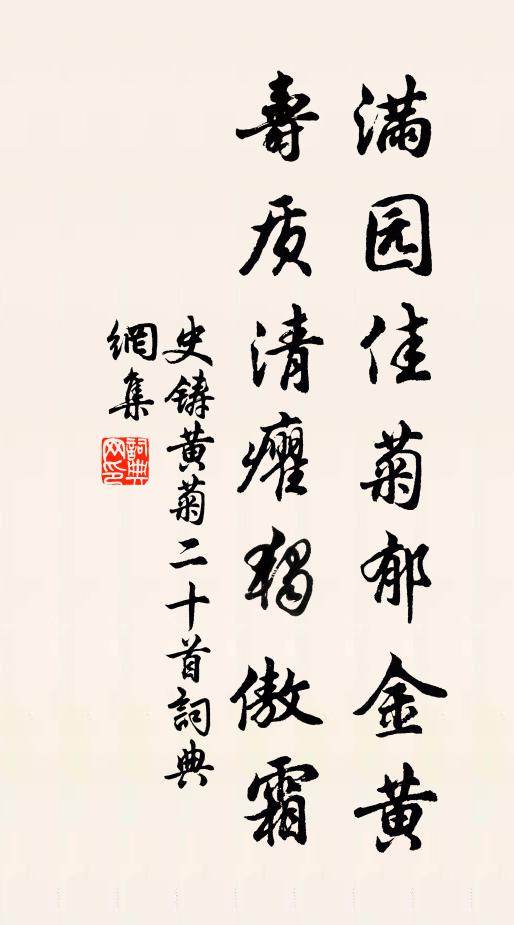 满园佳菊郁金黄
壽质清癯独傲霜
史鋳黄菊二十首詞典
網集
詞典网印